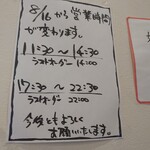 8/16から営業時間
が変わります。
11:30〜14:30
ラストオーダー 14:00
17:30〜22:30
ラストオーダー 22:00
今後ともよろしく
お願いいたします。